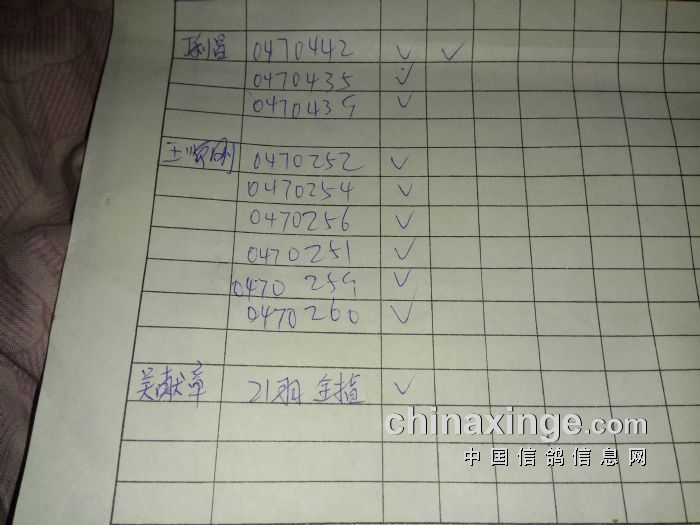 0470442 ✓ ✓
0470435 ✓
0470439 ✓
王顺刚 0470252 ✓
0470254 ✓
0470256 ✓
0470251 ✓
0470 259 ✓
0470260 ✓
吴献章 21羽 全指 ✓
chinaxinge.com
中国信鸽信息网